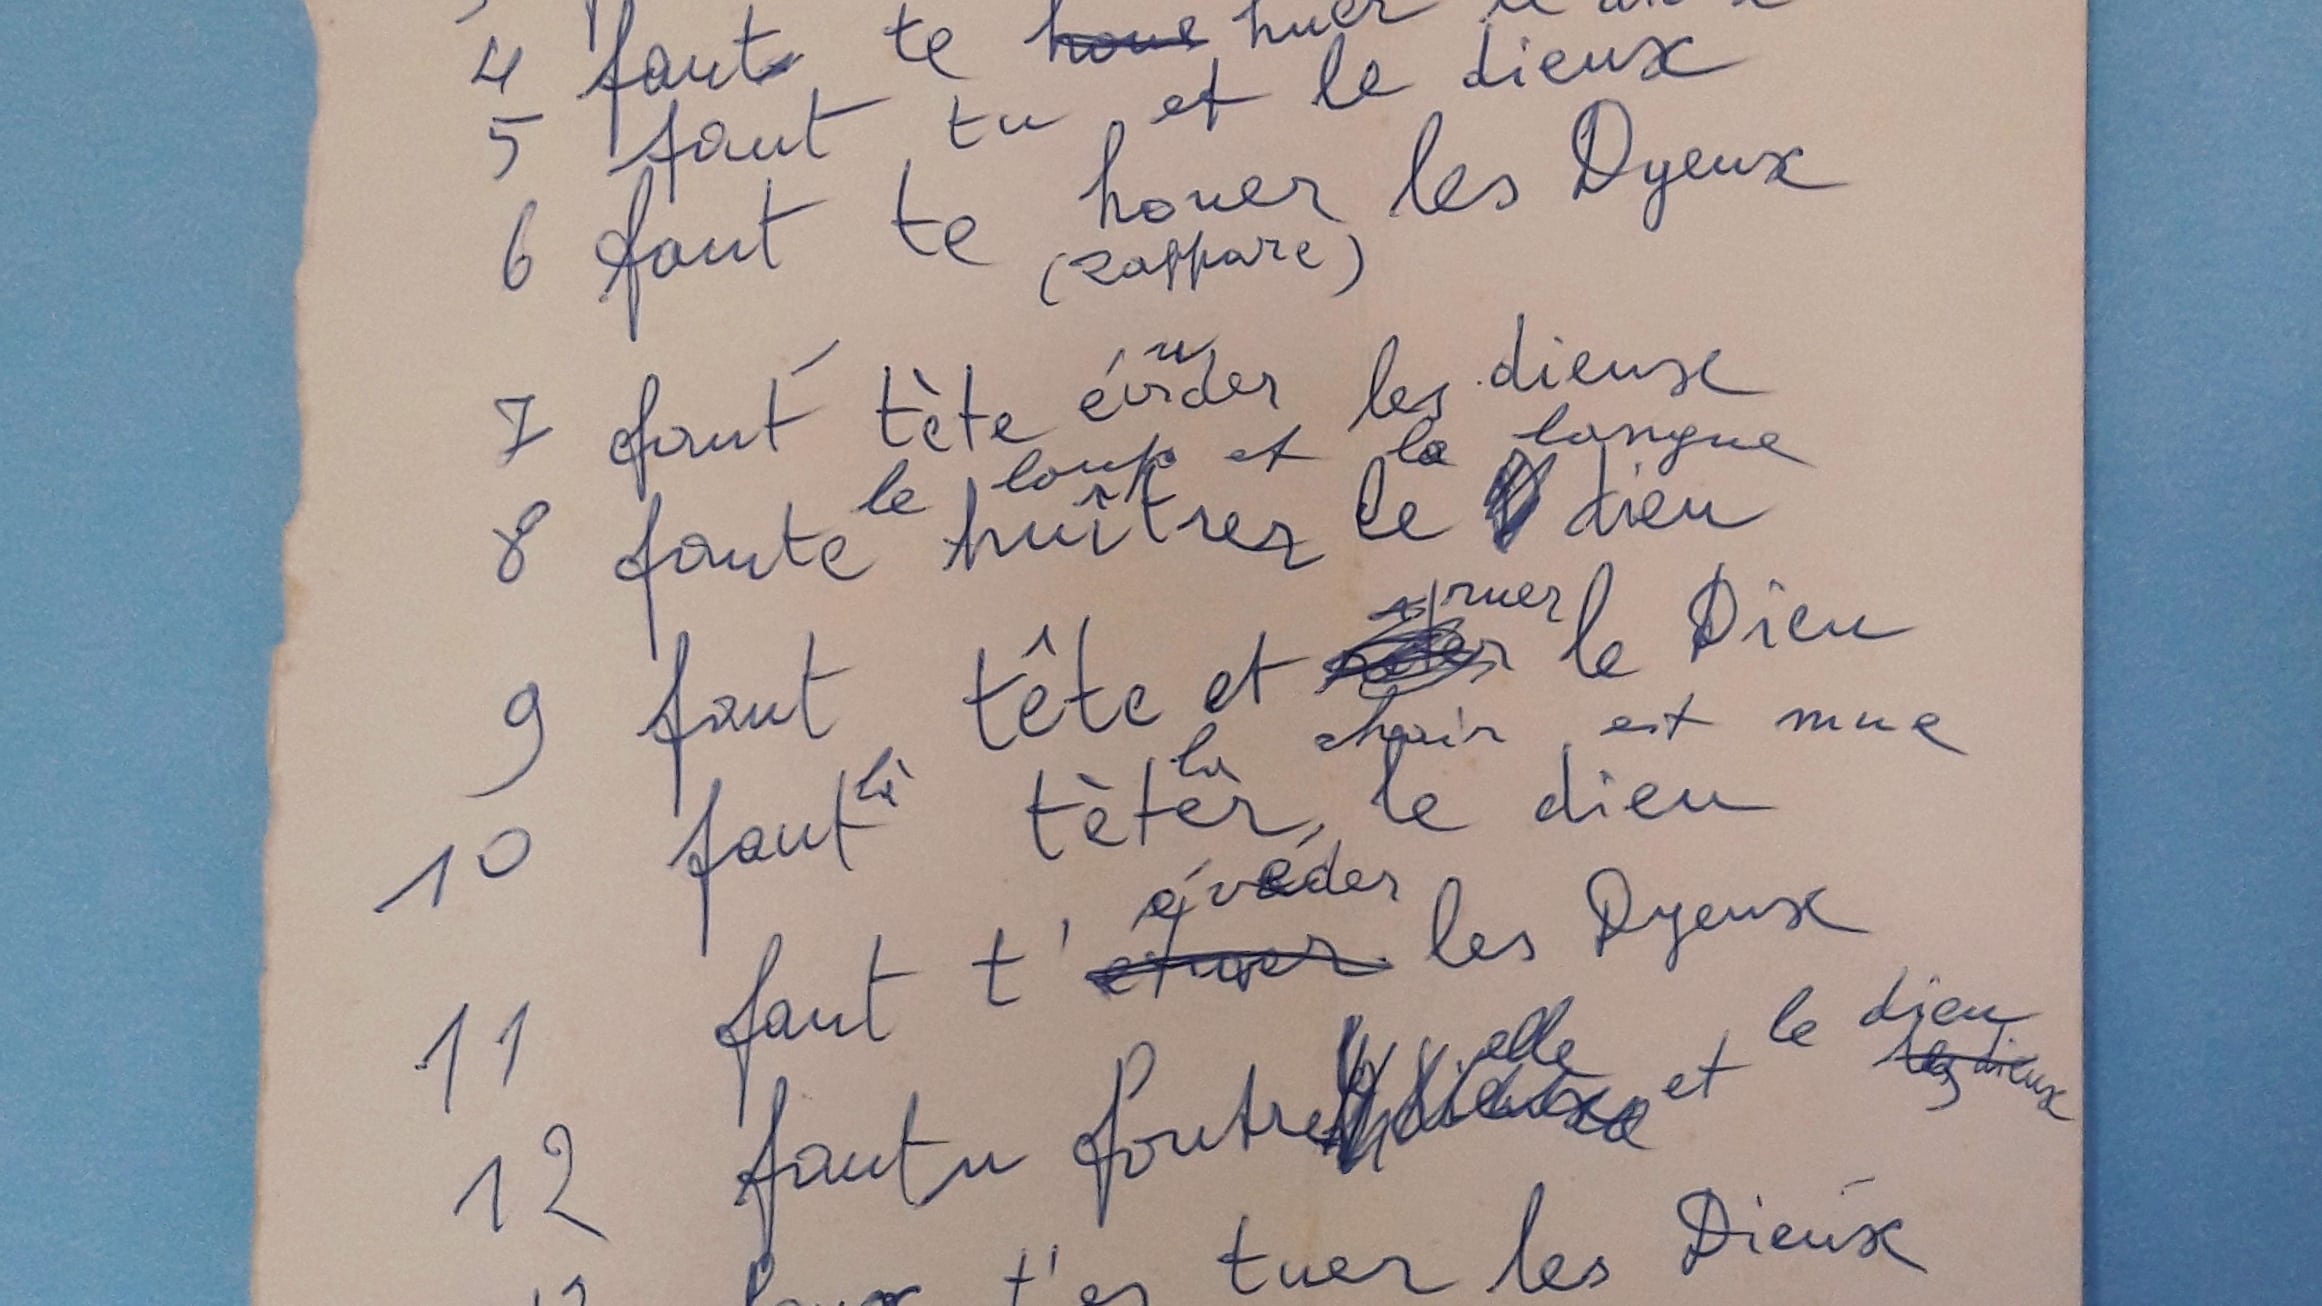 4 faut te houe huer
5 faut tu et le dieux
6 faut te houer les Dyeux
(zappare)
7 faut tète évider les dieux
le loup et la langue
8 faute huîtrer le dieu
truer
9 faut tête et le Dieu
la chair est mue
10 faut là tèter, le dieu
évéder
11 faut t' les Dyeux
elle et le dieu
12 fautu foutre les dieux
t'es tuer les Dieux